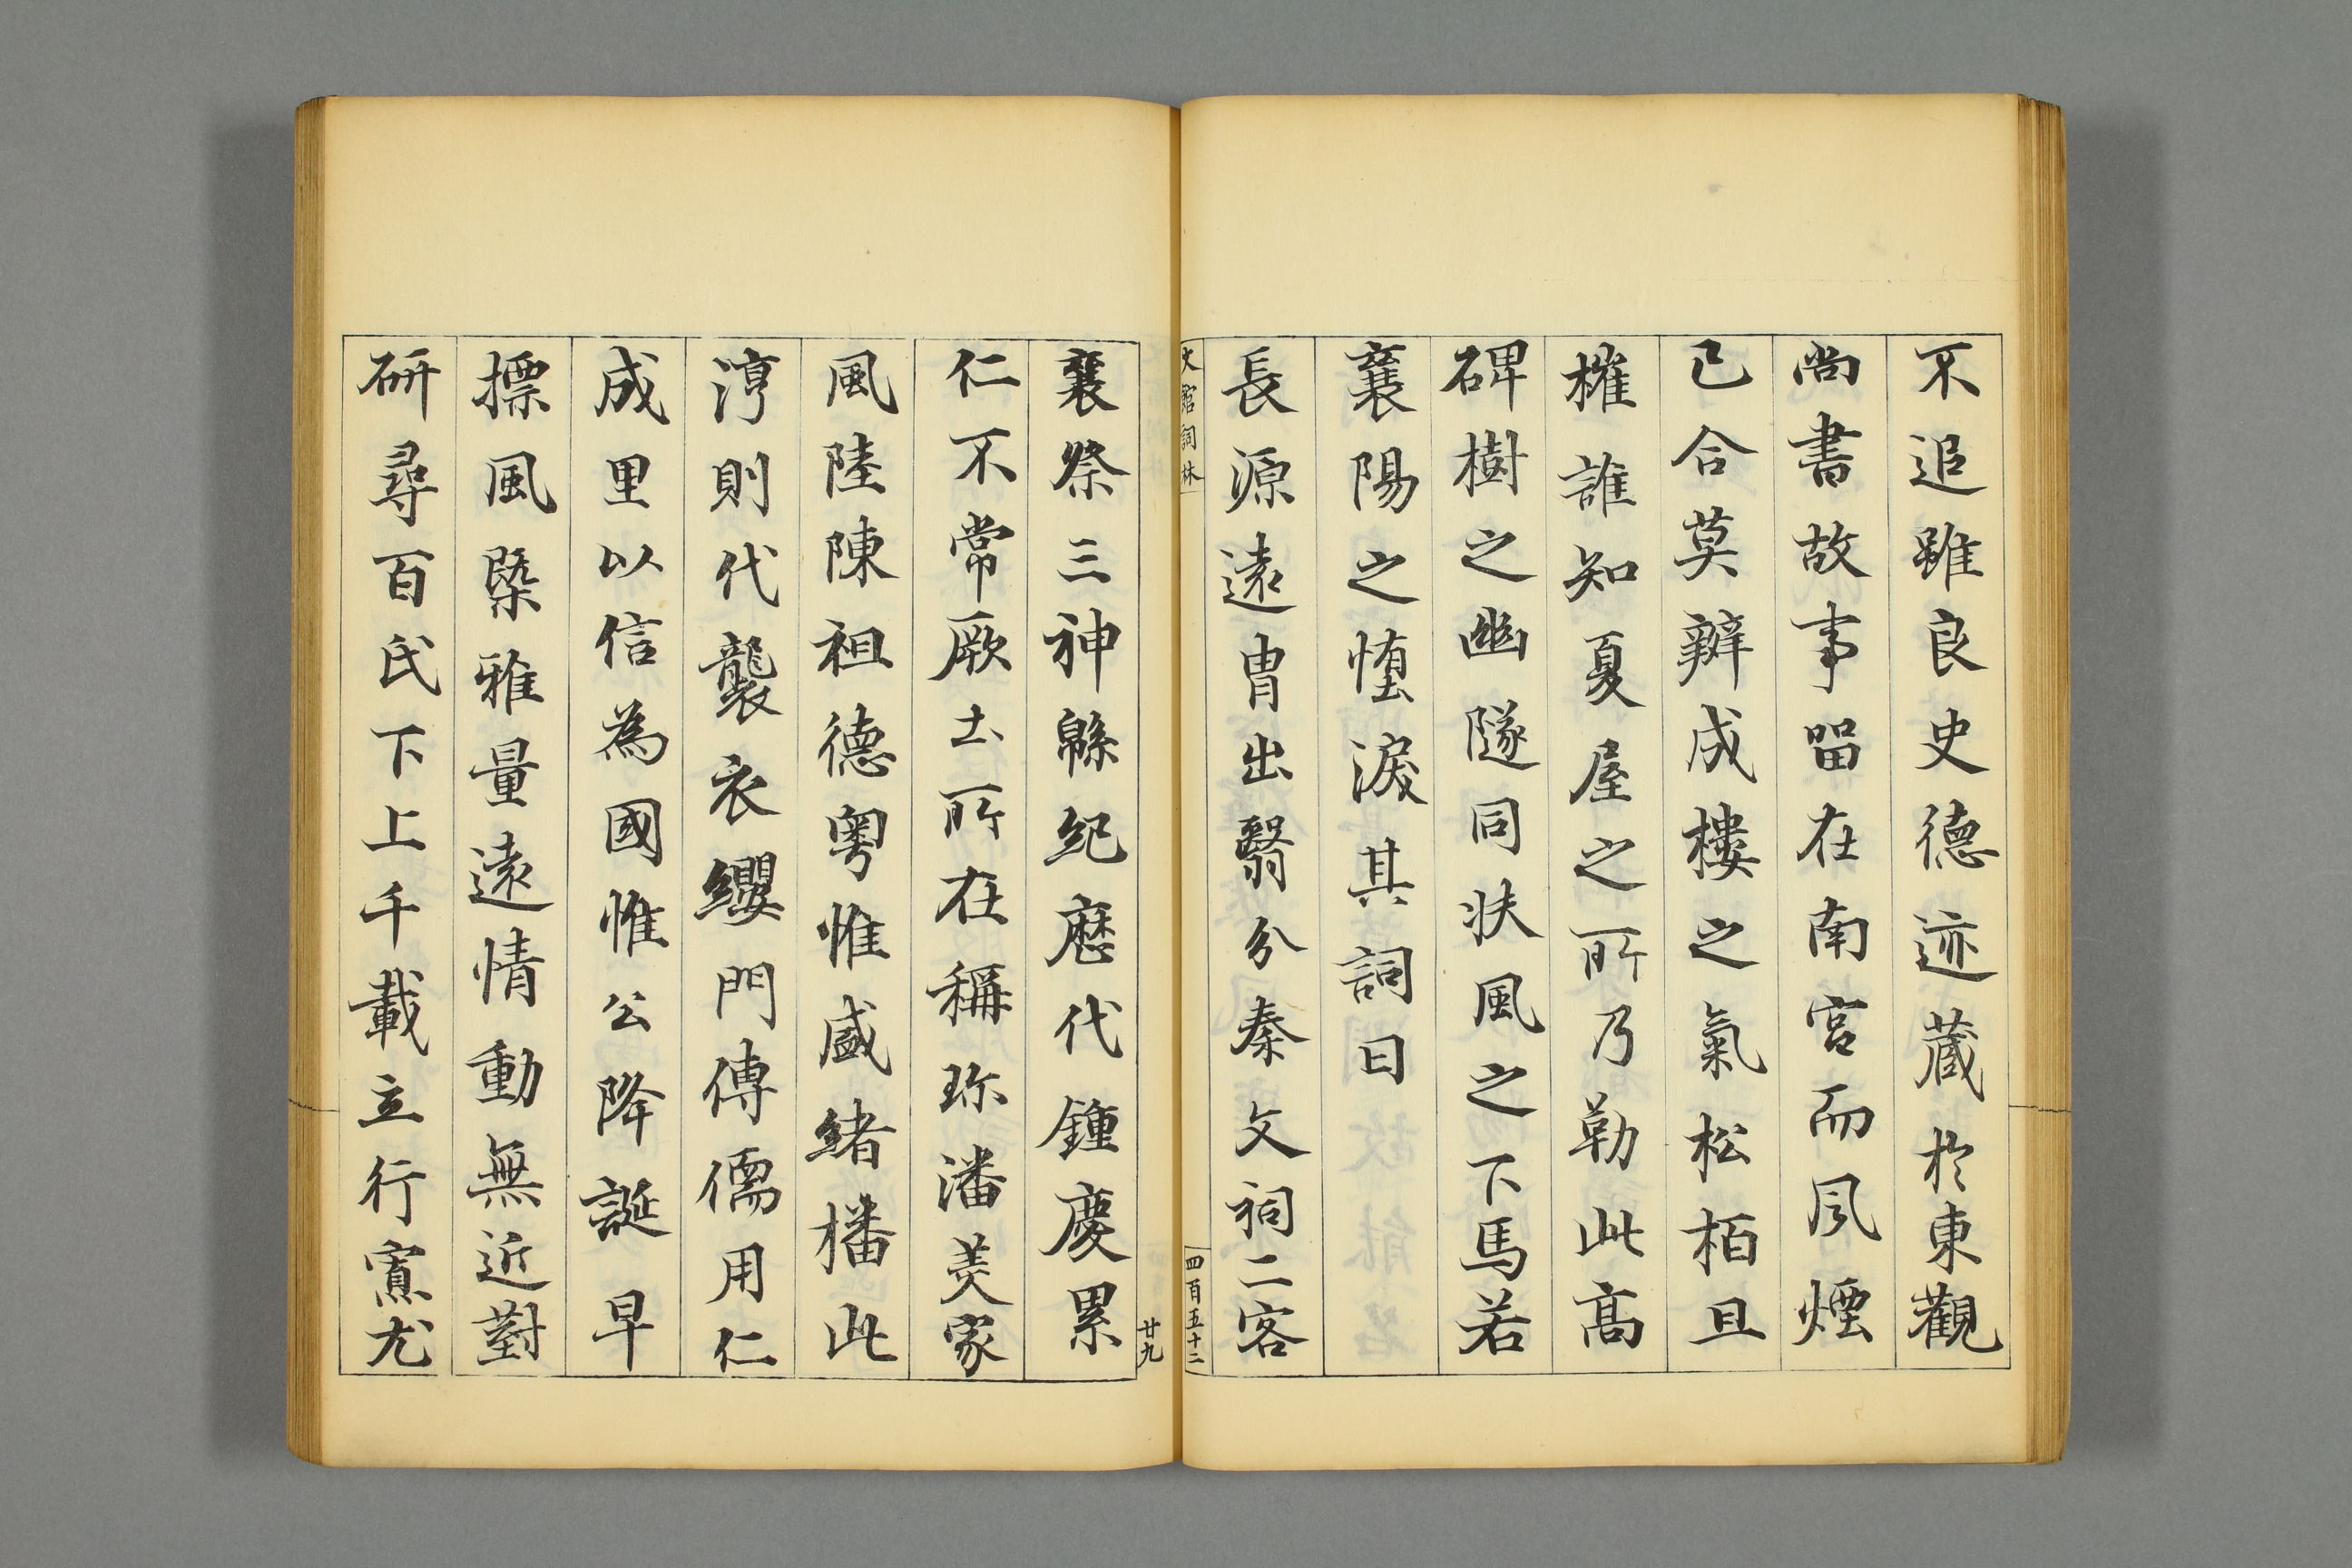 不追雖良史德迹蔵扵東觀
尚書故事畱在南宮而風煙
已合莫辧成樓之氣松栢且
摧誰知夏屋之所乃勒此髙
碑樹之幽隧同扶風之下馬若
襄陽之墮淚其詞曰
長源遠胄出翳分秦文祠二客
文館詞林
四百五十二
廿九
襄祭三神緜紀歷代鍾慶累
仁不常厥土所在稱珎潘羙家
風陸陳祖德粤惟盛緒播此
淳則代襲衣纓門傳儒用仁
成里以信為國惟公降誕早
摽風槩雅量遠情動無近對
研尋百氏下上千載立行寡尤